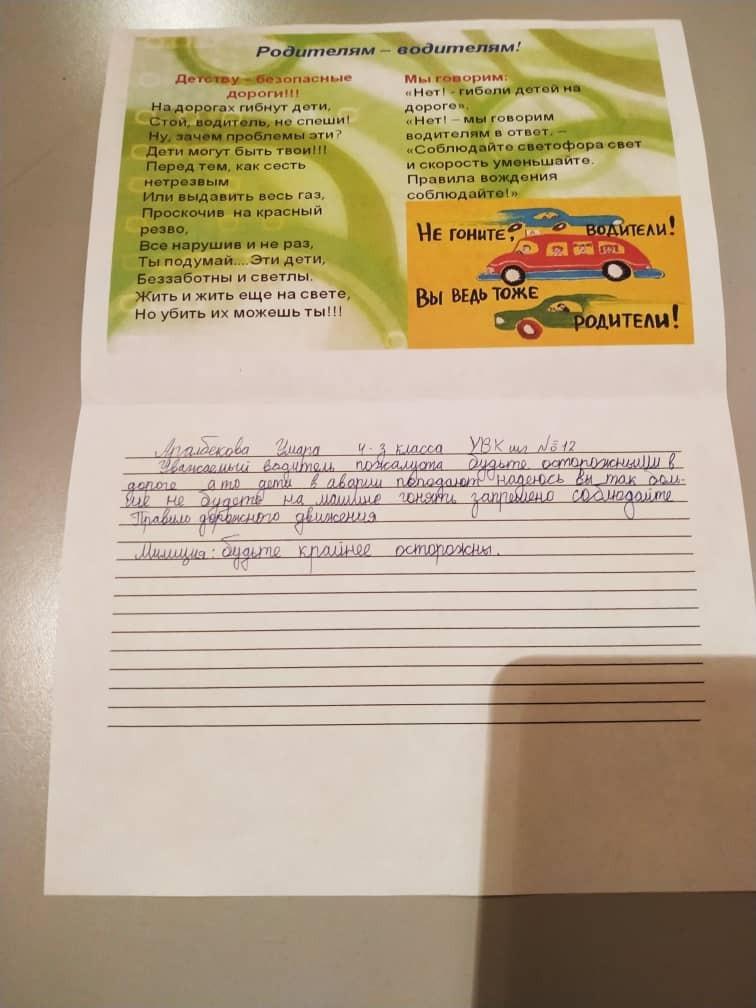 Родителям – водителям!
Детству – безопасные
дороги!!!
На дорогах гибнут дети,
Стой, водитель, не спеши!
Ну, зачем проблемы эти?
Дети могут быть твои!!!
Перед тем, как сесть
нетрезвым
Или выдавить весь газ,
Проскочив на красный
резво,
Все нарушив и не раз,
Ты подумай....Эти дети,
Беззаботны и светлы.
Жить и жить еще на свете,
Но убить их можешь ты!!!
Мы говорим:
«Нет! - гибели детей на
дороге»,
«Нет! – мы говорим
водителям в ответ, –
«Соблюдайте светофора свет
и скорость уменьшайте.
Правила вождения
соблюдайте!»
Не гоните, водители!
Вы ведь тоже
родители!
Апалбекова 4-3 класса УВК шг №12
Уважаемый водитель пожалуста будьте осторожными в
дороге а то дети в аварии поподают надеюсь вы так боль-
ше не будете на машине гонять запрещено соблюдайте
Правило дорожного движения
Милиция: будьте крайнее осторожны.